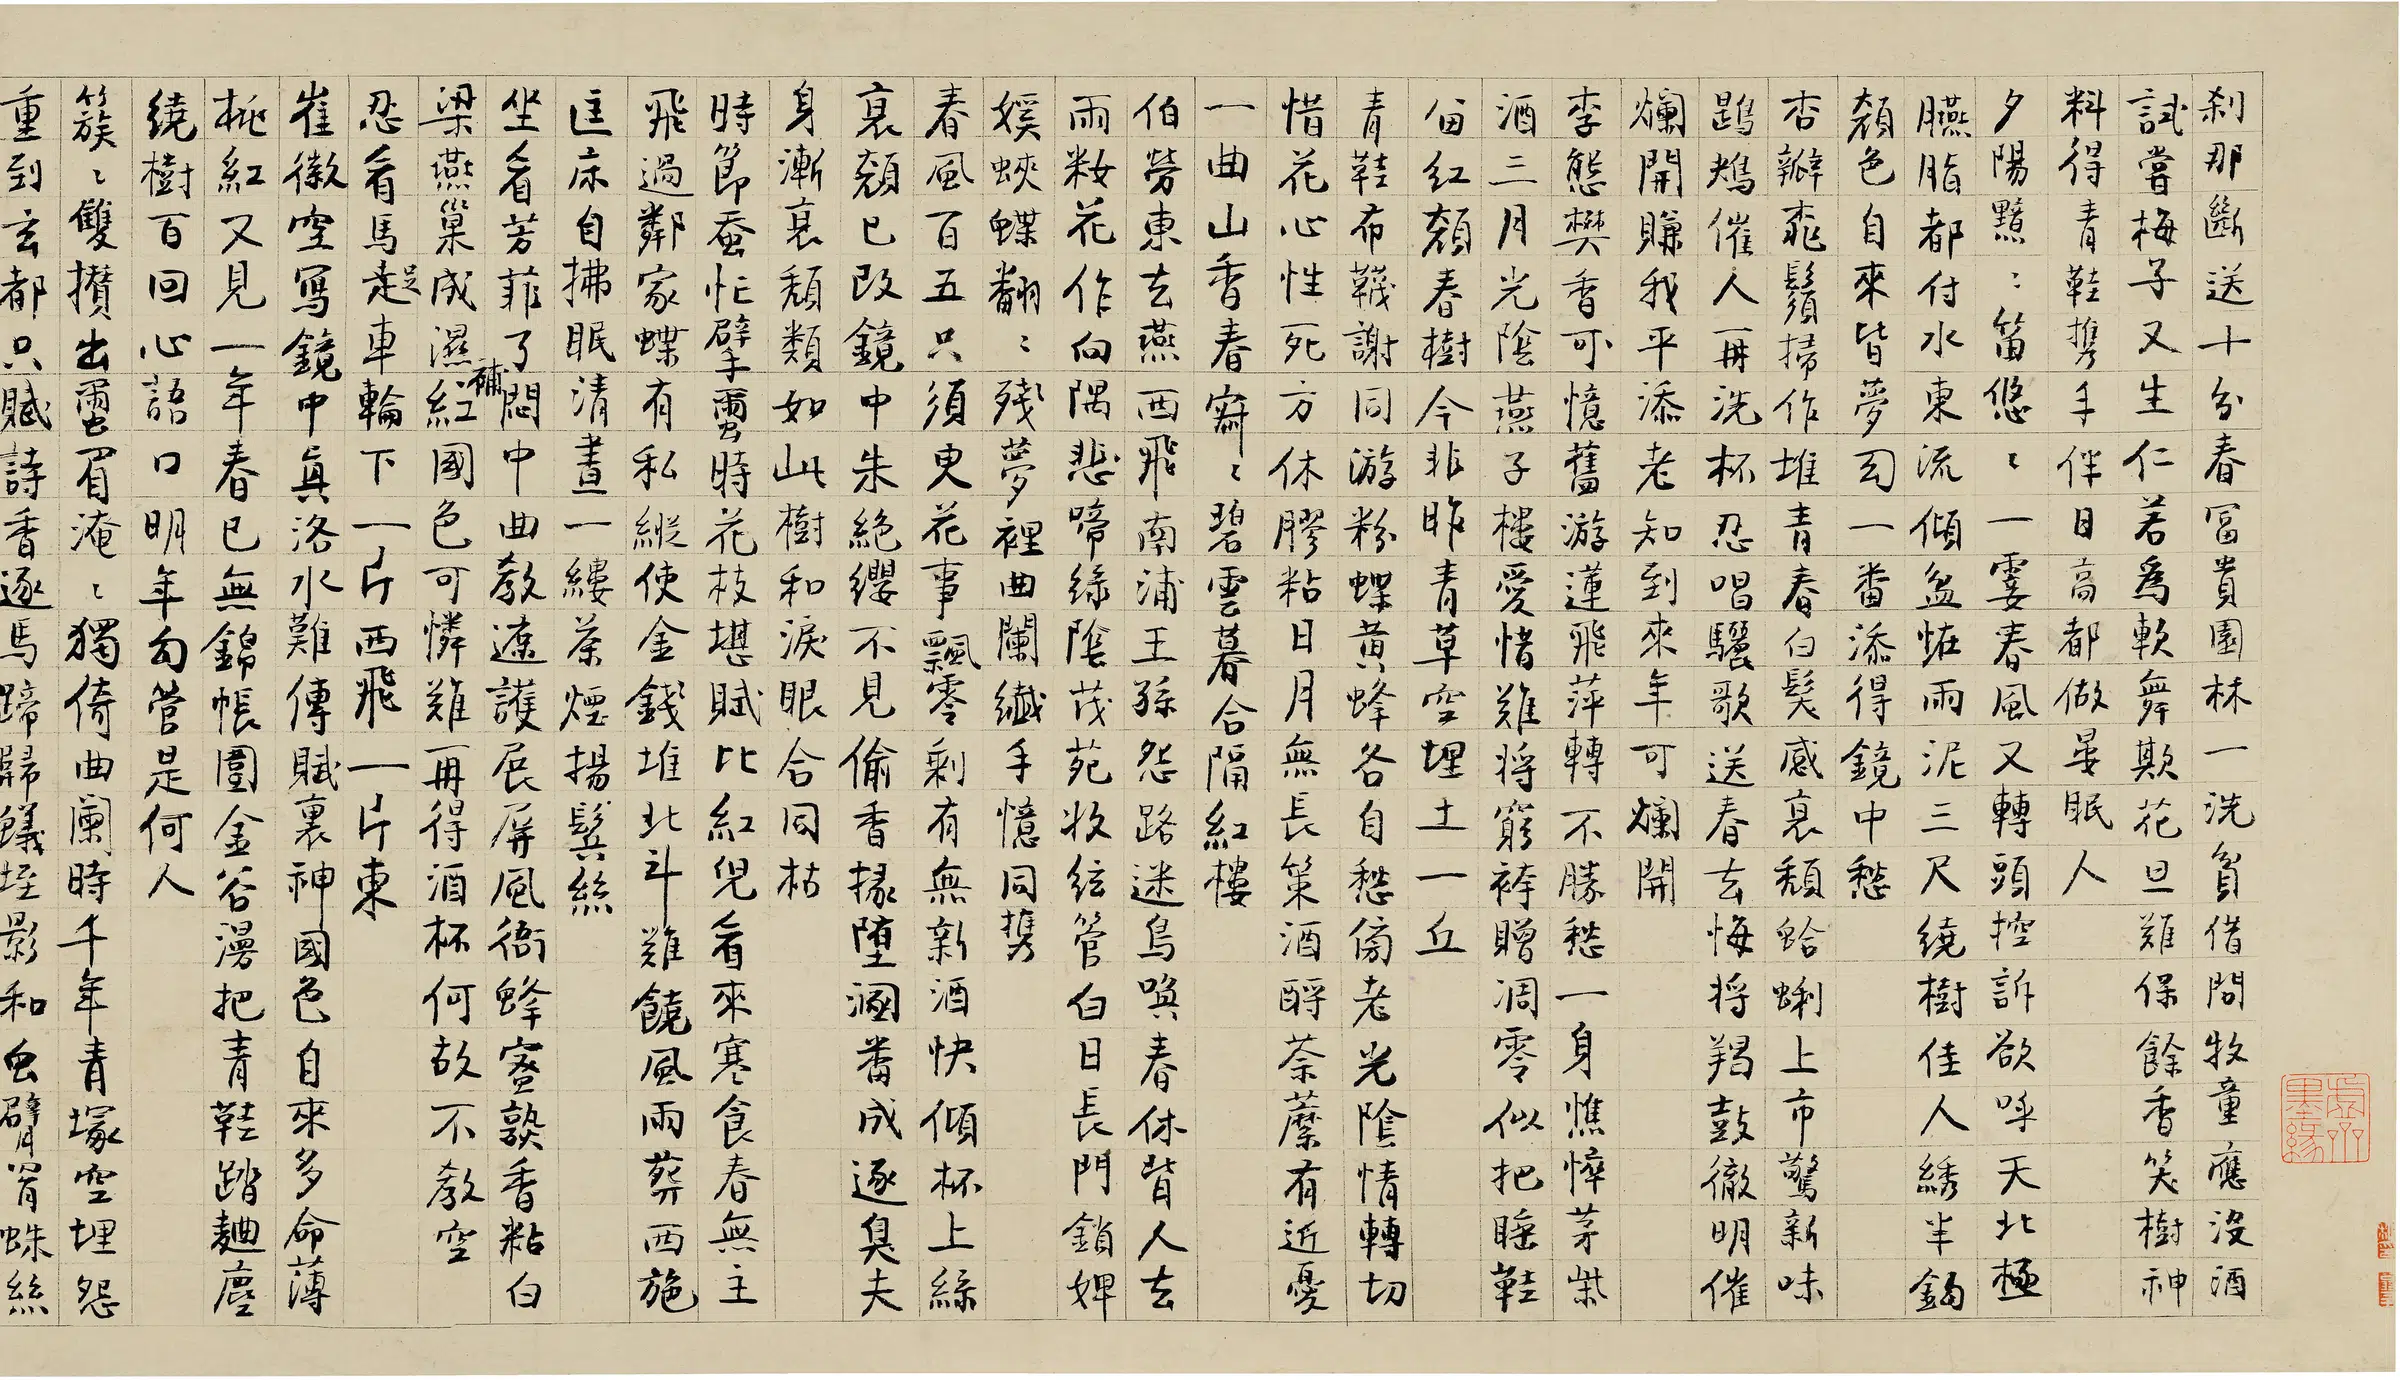 刹那斷送十分春冨貴園林一洗貧借問牧童應沒酒
試嘗梅子又生仁若爲軟舞欺花旦難保餘香笑樹神
料得青鞋携手伴日高都做晏眠人
夕陽黯〻笛悠〻一霎春風又轉頭控訴欲呼天北極
臙脂都付水東流傾盆恠雨泥三尺繞樹佳人綉半鈎
顏色自來皆夢幻一番添得鏡中愁
杏瓣桃鬚掃作堆青春白髮感衰頹蛤蜊上市驚新味
鵾鴂催人再洗杯忍唱驪歌送春去悔將羯鼓徹明催
爛開賺我平添老知到來年可爛開
李態樊香可憶舊游蓮飛萍轉不勝愁一身憔悴茅柴
酒三月光陰燕子樓愛惜難將窮袴贈凋零似把睡鞋
留紅顏春樹今非昨青草空埋土一丘
青鞋布韈謝同游粉蝶黃蜂各自愁傍老光陰情轉切
惜花心性死方休膠粘日月無長策酒酹荼蘼有近憂
一曲山香春寂〻碧雲暮合隔紅樓
伯勞東去燕西飛南浦王孫怨路迷鳥喚春休背人去
雨敉花作向隅悲啼綠陰茂苑收絃管白日長門鎖婢
媄蛺蝶翻〻殘夢裡曲闌纖手憶同携
春風百五只須臾花事飄零剩有無新酒快傾杯上絲
衰顏已改鏡中朱絶纓不見偷香掾墮溷番成逐臭夫
身漸衰頹類如此樹和淚眼合同枯
時節蚕忙擘蠒時花枝堪賦比紅兒看來寒食春無主
飛過鄰家蝶有私縱使金錢堆北斗難饒風雨葬西施
匡床自拂眠清晝一縷茶煙揚鬢絲
坐看芳菲了悶中曲教遮護展屏風衙蜂蜜熟香粘白
梁燕巢成濕補紅國色可憐難再得酒杯何故不教空
忍看馬走足車輪下一片西飛一片東
崔徽空寫鏡中真洛水難傳賦裏神國色自來多命薄
桃紅又見一年春已無錦帳圍金谷漫把青鞋踏麯塵
繞樹百回心語口明年勾管是何人
簇〻雙攢出蠒眉淹〻獨倚曲闌時千年青塚空埋怨
重到玄都只賦詩香逐馬蹄歸蟻垤影和虫臂罥蛛絲